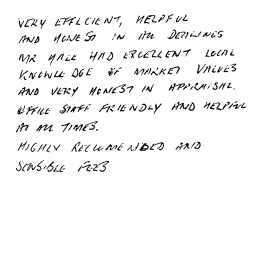 VERY EFFICIENT, HELPFUL
AND HONEST IN ALL DEALINGS
MR HALL HAD EXCELLENT LOCAL
KNOWLEDGE OF MARKET VALUES
AND VERY HONEST IN APPRAISAL.
OFFICE STAFF FRIENDLY AND HELPFUL
AT ALL TIMES.
HIGHLY RECOMMENDED AND
SENSIBLE FEES